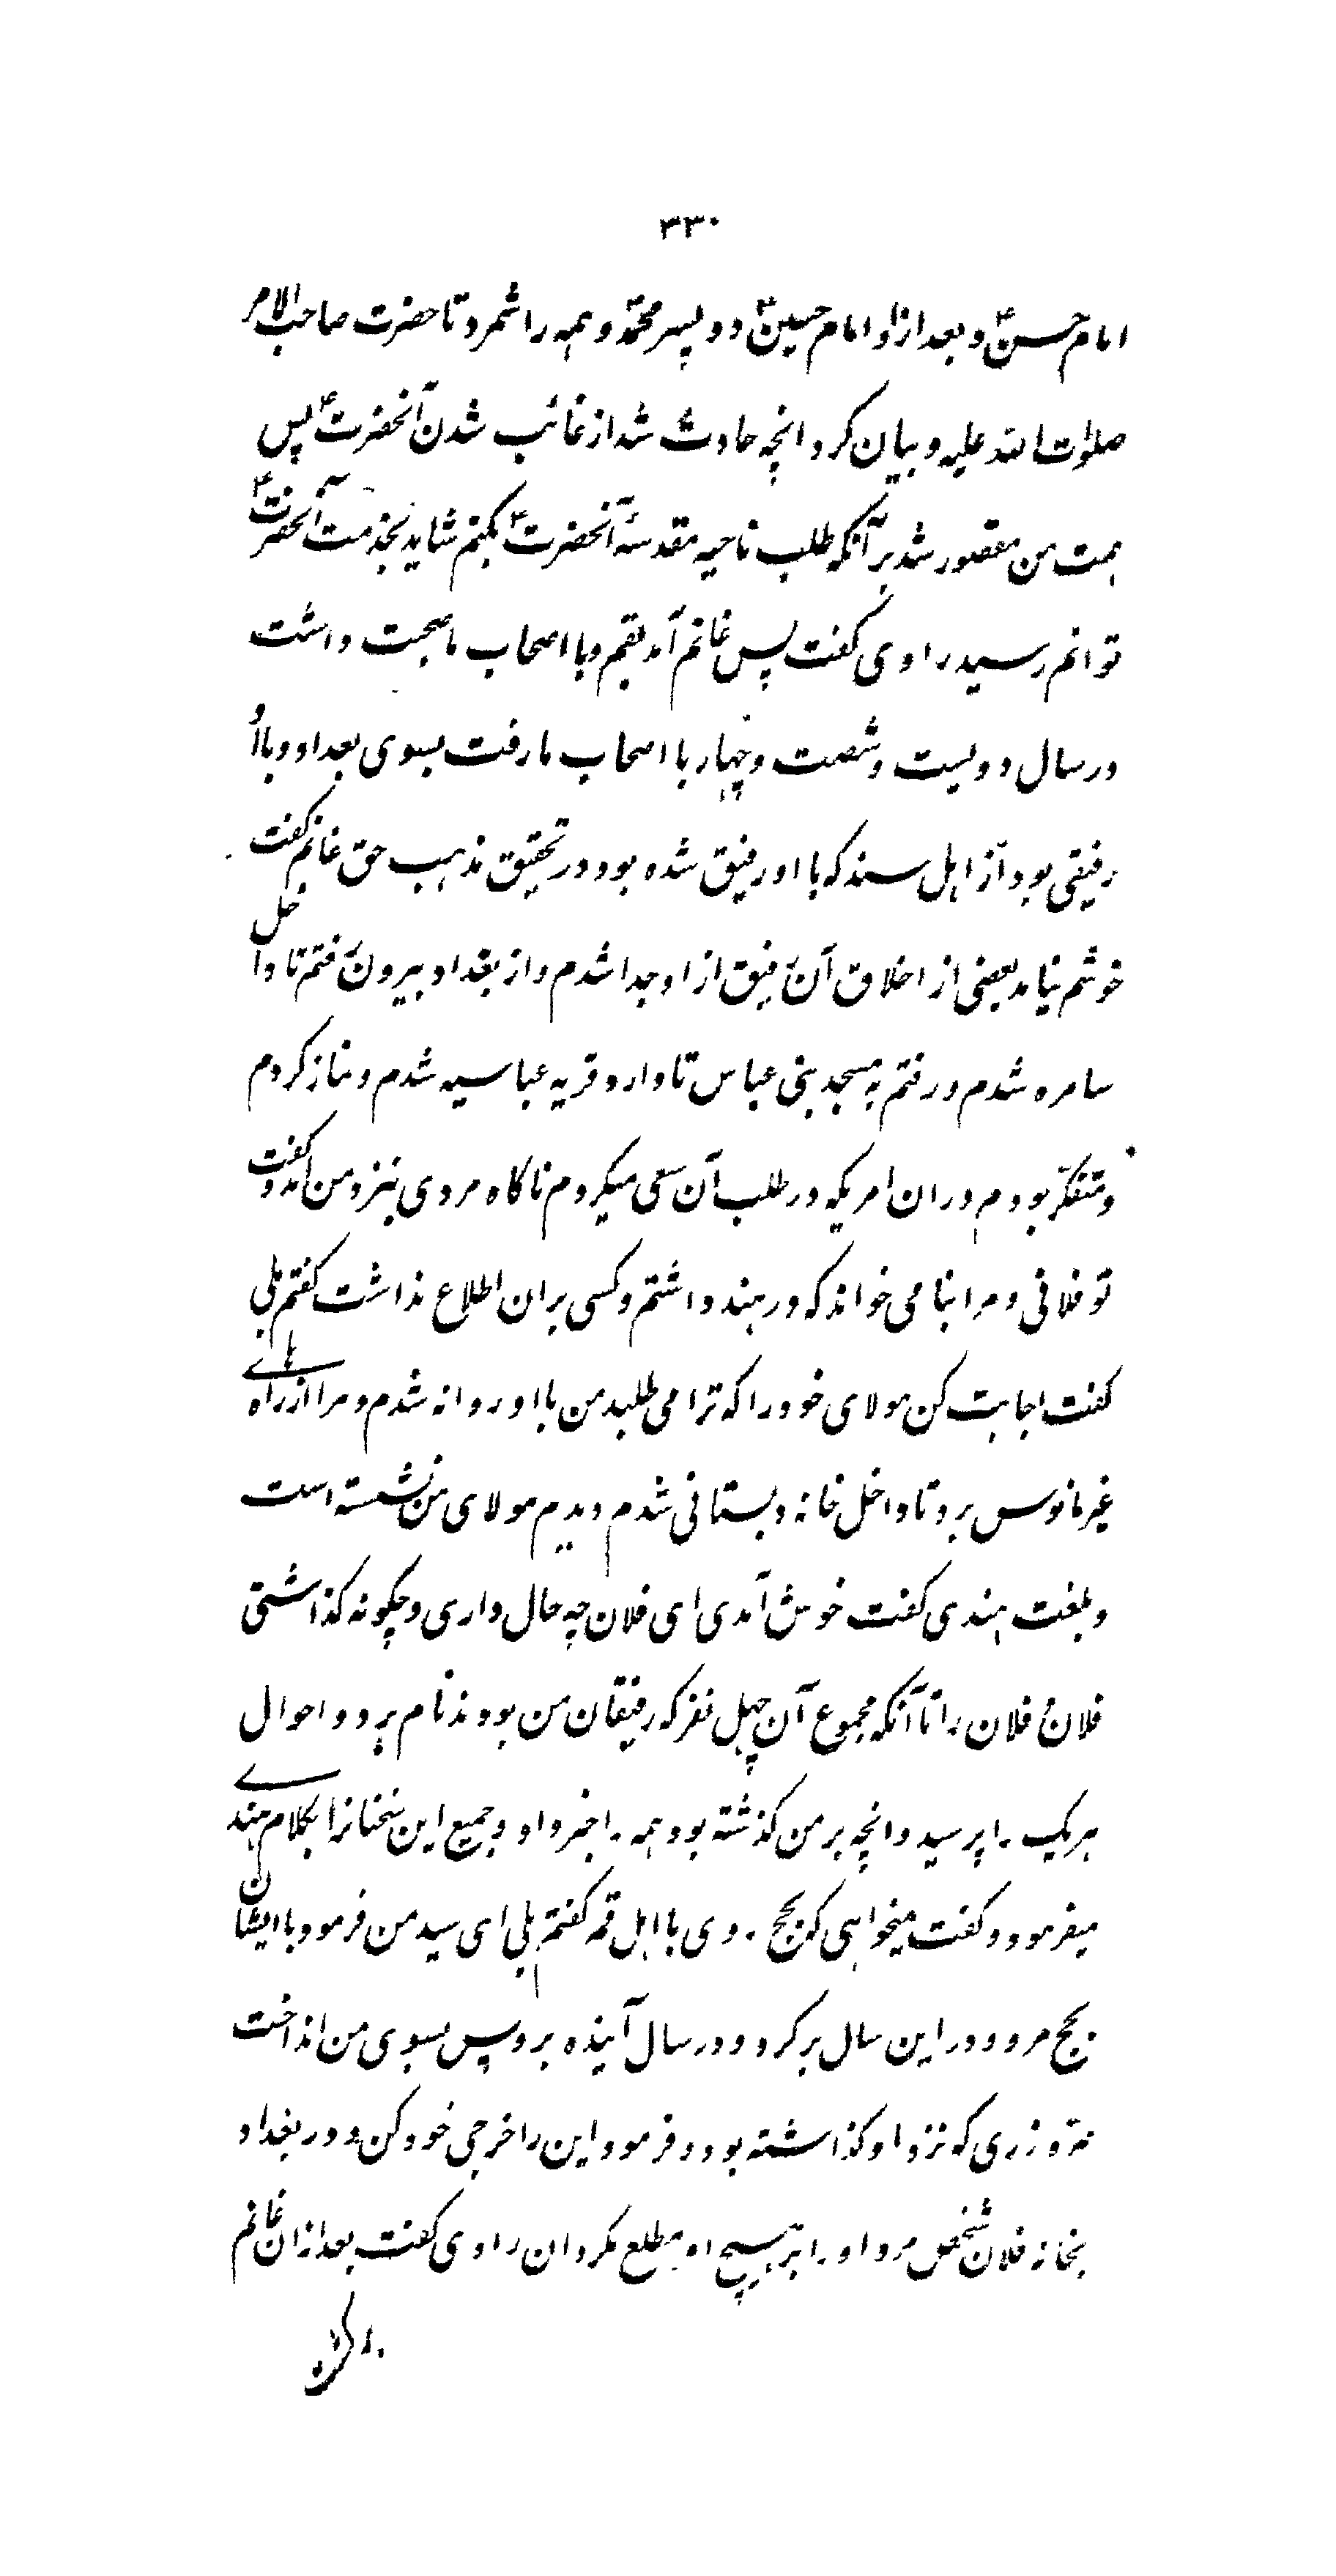 ۳۳۰
امام حسنؑ و بعد از او امام حسینؑ دو پسر محمدؐ و همه را شمرد تا حضرت صاحب الامر
صلوات الله علیه و بیان کرد انچه حادث شد از غائب شدن آنحضرتؑ پس
همت من مقصور شد بر آنکه طلب ناحیه مقدسهٔ آنحضرتؑ بکنم شاید بخدمت آنحضرتؑ
توانم رسید راوی گفت پس غانم آمد بقم و با اصحاب ما صحبت داشت
در سال دویست و شصت و چهار با اصحاب ما رفت بسوی بغداد و با او
رفیقی بود از اهل سند که با او رفیق شده بود در تحقیق مذهب حق غانم گفت
خوشم نیامد بعضی از اخلاق آن رفیق از او جدا شدم و از بغداد بیرون رفتم تا داخل
سامره شدم و رفتم به مسجد بنی عباس تا وارد قریه عباسیه شدم و نماز کردم
و متفکر بودم در ان امریکه در طلب آن سعی میکردم ناگاه مردی بنزد من آمد و گفت
تو فلانی و مرا بنامی خواند که در هند داشتم و کسی بر ان اطلاع نداشت گفتم بلی
گفت اجابت کن مولای خود را که ترا می طلبد من با او روانه شدم و مرا از راه هاے
غیر مانوس برد تا داخل خانه و بستانی شدم دیدم مولای من نشسته است
و بلغت هندی گفت خوش آمدی ای فلان چه حال داری و چگونه گذاشتی
فلان فلان را تا آنکه مجموع آن چهل نفر که رفیقان من بودند نام برد و احوال
هریک را پرسید و انچه بر من گذشته بود همه را خبر داد و جمیع این سخنانرا بکلام هندے
میفرمود و گفت میخواهی که بحج روی با اهل قم گفتم بلی ای سید من فرمود با ایشان
بحج مرو و در این سال برگرد و در سال آینده برو پس بسوی من انداخت
صرّه زری که نزد او گذاشته بود و فرمود این را خرجی خود کن و در بغداد
بخانه فلان شخص مرو و او را بر هیچ امر مطلع مگردان راوی گفت بعد از ان غانم
برگشت